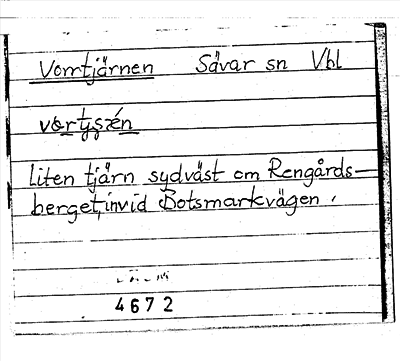 Vorrtjärnen Sävar sn Vbl
liten tjärn sydväst om Rengårds-
berget, invid Botsmarkvägen.
4672